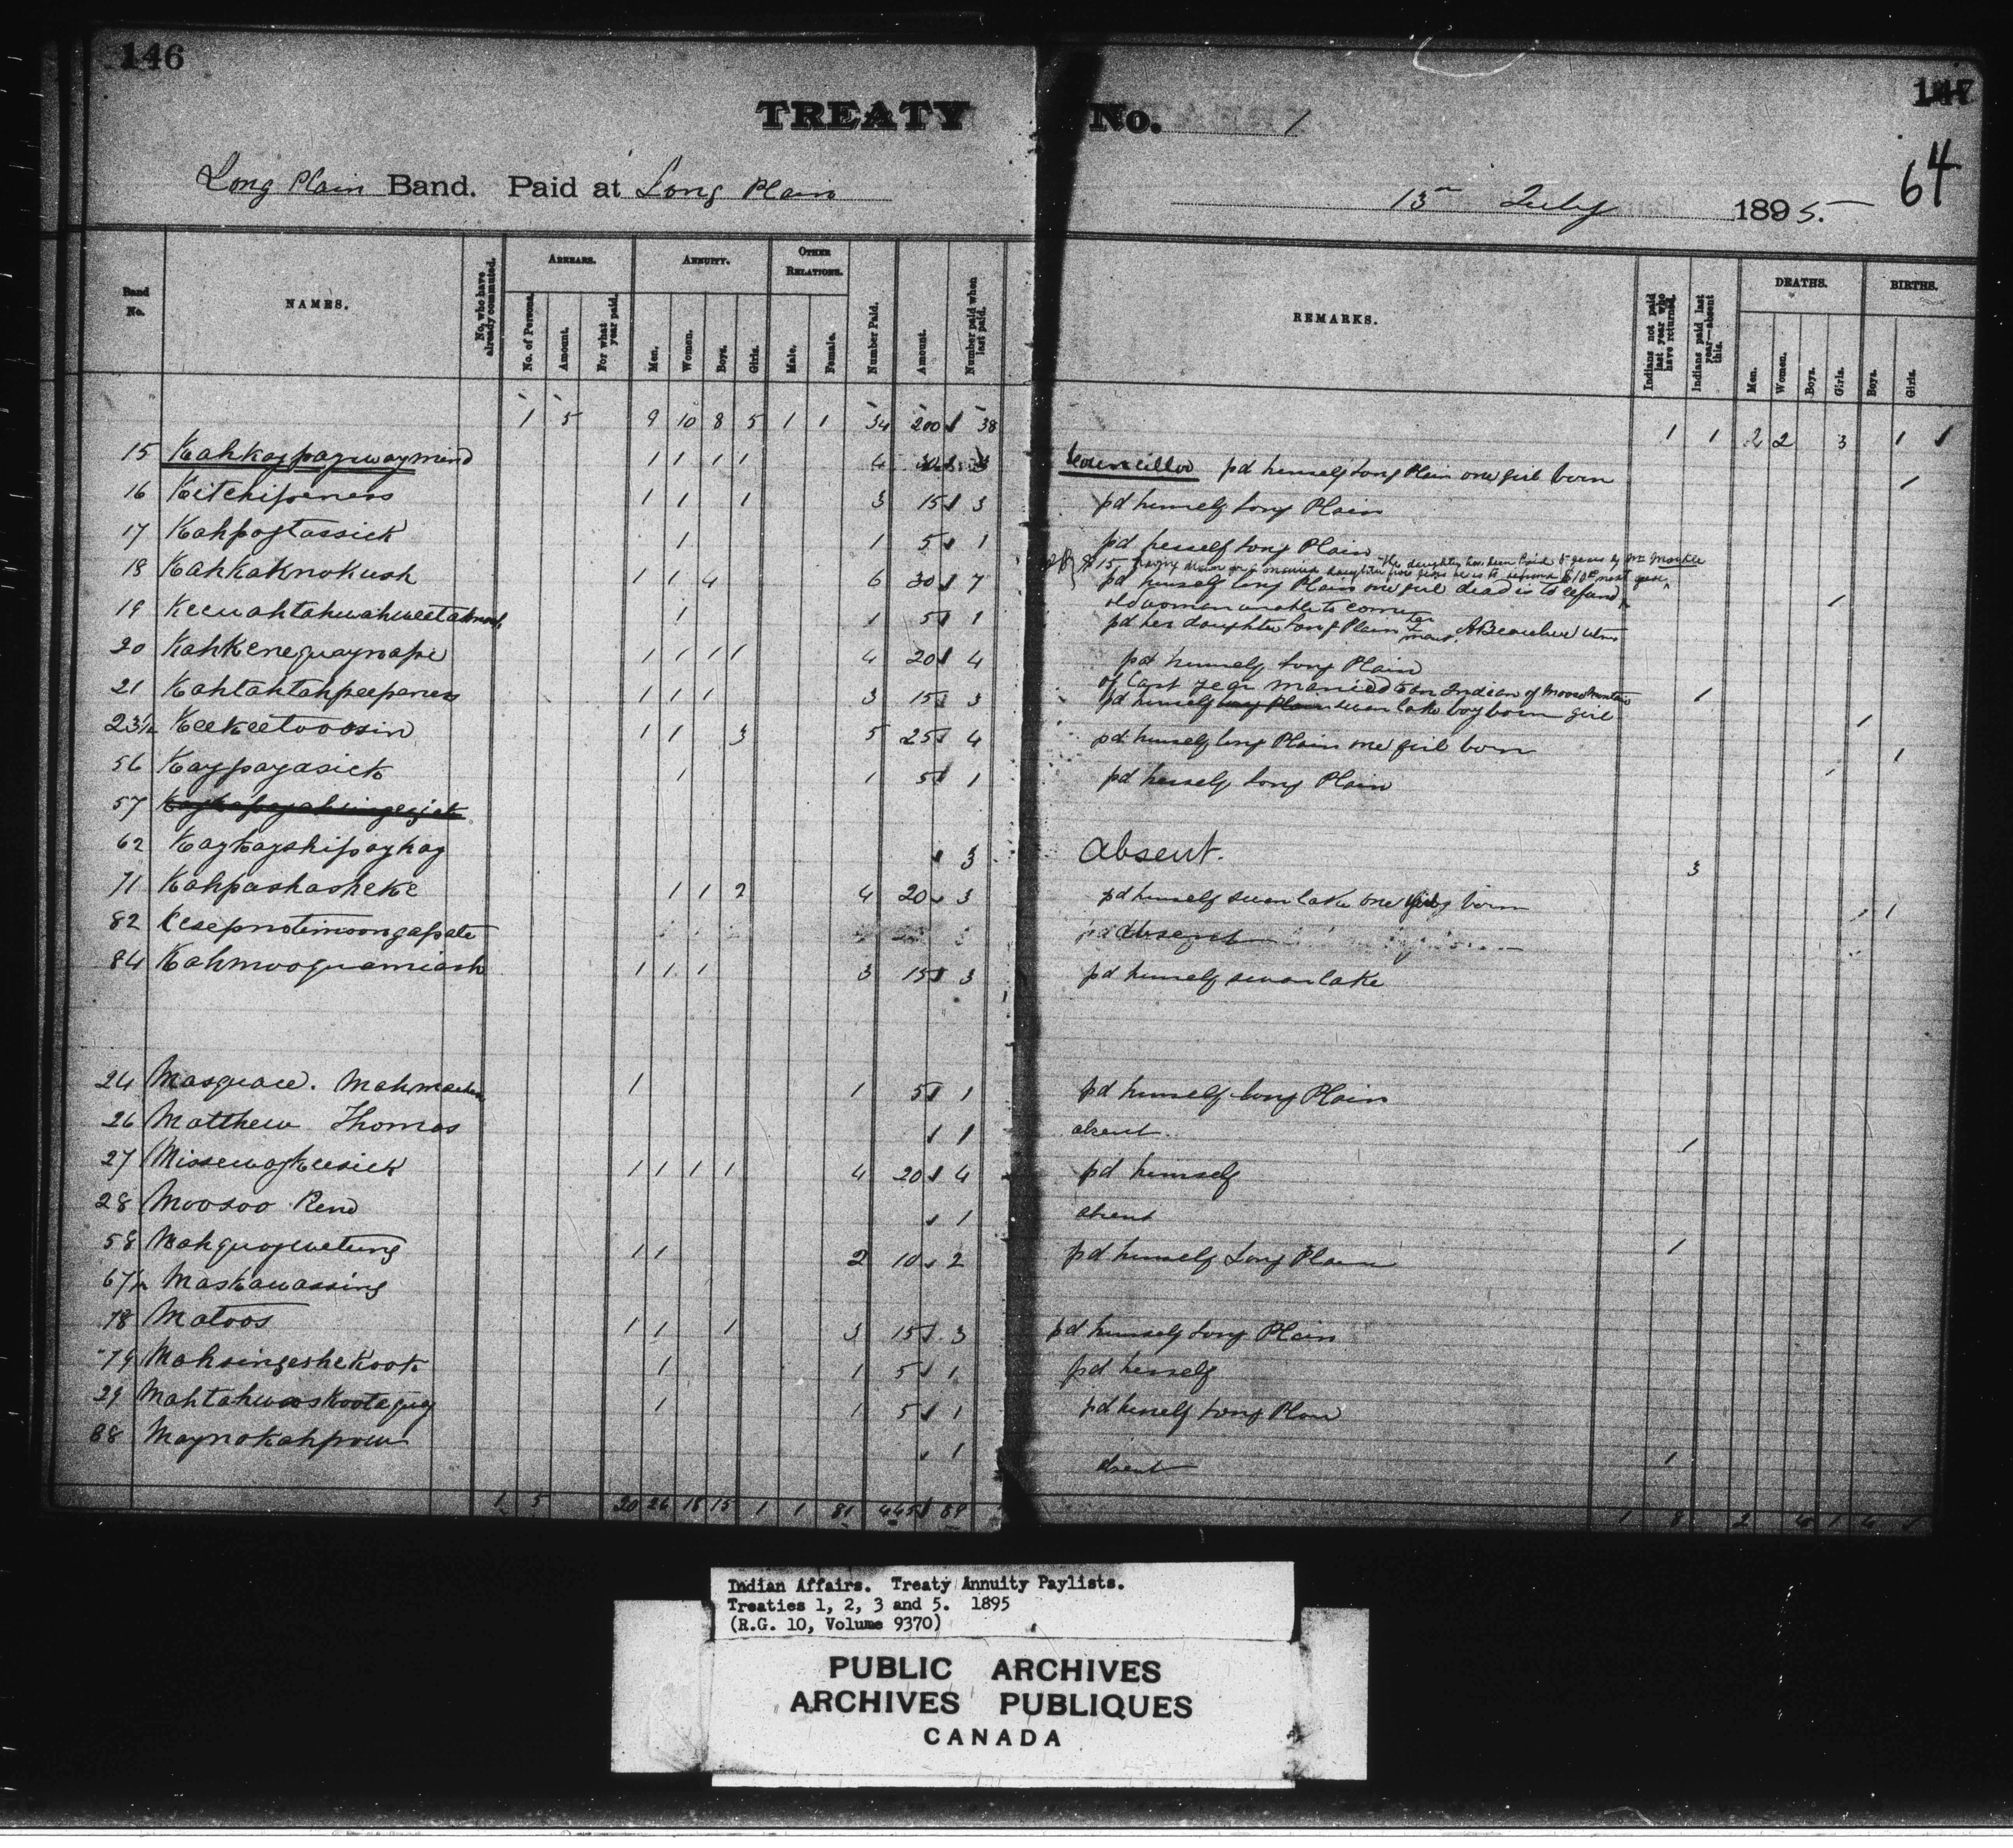 146
147
64
TREATY No. 1
Long Plain Band. Paid at Long Plain
15th July 1895.
Band No.
NAMES.
No. who have already commuted.
ARREARS.
No. of Persons.
Amount.
For what year paid.
ANNUITY.
Men.
Women.
Boys.
Girls.
OTHER RELATIONS.
Male.
Female.
Number Paid.
Amount.
Number paid when last paid.
REMARKS.
Indians not paid last year who have returned.
Indians paid last year—absent this.
DEATHS.
Men.
Women.
Boys.
Girls.
BIRTHS.
Boys.
Girls.
1 5 9 10 8 5 1 1 34 200 38 1 1 2 2 3 1 1
15 Kahkaypaywaymind 1 1 1 1 4 Councillor pd himself Long Plain one girl born 1
16 Kitchipeness 1 1 1 3 15 3 pd himself Long Plain
17 Kahpaytassick 1 1 5 1 pd herself Long Plain
18 Kahkaknokush 1 1 4 6 30 7 pd himself Long Plain one girl dead is to refund 1
19 1 1 5 1 old woman unable to come
pd her daughter Long Plain
20 Kahkenequaynape 1 1 1 1 4 20 4 pd himself Long Plain
21 Kahtahtahpeepeness 1 1 1 3 15 3 of last year married to an Indian of Moose Mountain 1
pd himself Swan Lake boy born girl 1
23½ Keekeetoossin 1 1 3 5 25 4 pd himself Long Plain one girl born 1
56 Kaypayasick 1 1 5 1 pd herself Long Plain
57
62 Kaykayshipaykay 3 absent. 3
71 Kahpashasheke 1 1 2 4 20 3 pd himself Swan Lake one born 1
82 absent
84 Kahmooquamiash 1 1 1 3 15 3 pd himself Swan Lake
24 Masquace. 1 1 5 1 pd himself Long Plain
26 Matthew Thomas 1 absent 1
27 Missewaykeesick 1 1 1 1 4 20 4 pd himself
28 Moosoo Rend 1 absent
58 Mahquaywetung 1 1 2 10 2 pd himself Long Plain 1
67½ Maskawassing
78 Matoos 1 1 1 3 15 3 pd himself Long Plain
79 Mahsingeshekook 1 1 5 1 pd herself
29 Mahtahwaskootequay 1 1 5 1 pd herself Long Plain
88 Maynokahpow 1 absent 1
1 5 20 26 18 15 1 1 81 445 89 1 8 2
Indian Affairs. Treaty Annuity Paylists.
Treaties 1, 2, 3 and 5. 1895
(R.G. 10, Volume 9370)
PUBLIC ARCHIVES
ARCHIVES PUBLIQUES
CANADA